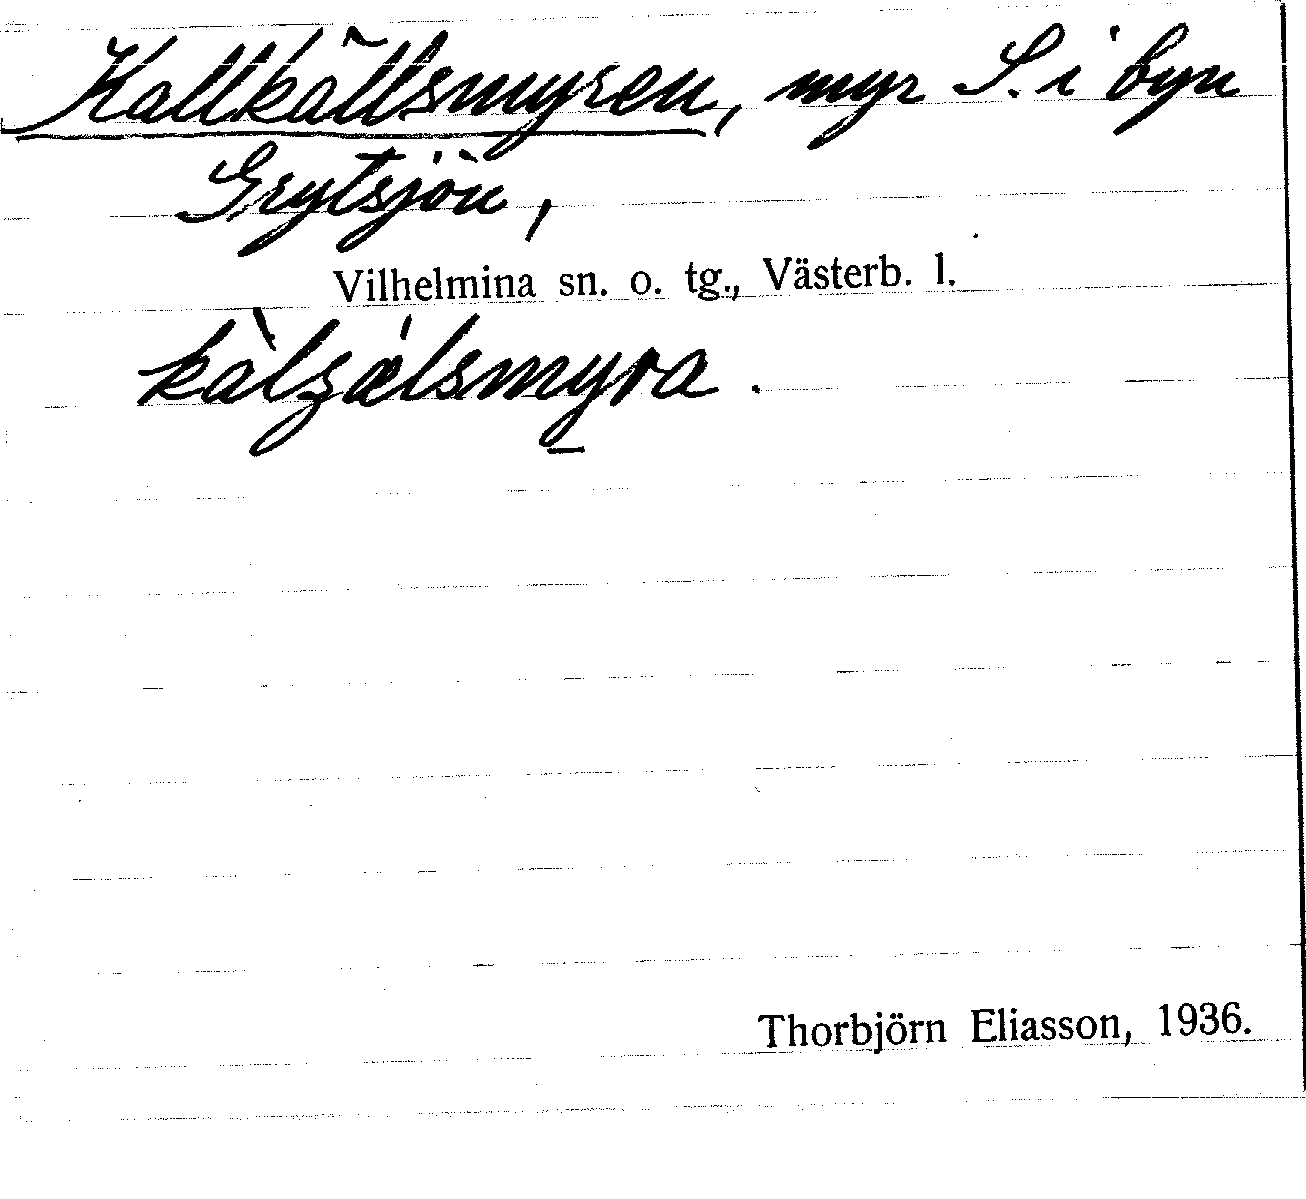 Kallkällsmyren, myr S. i byn
Grytsjön,
Vilhelmina sn. o. tg., Västerb. l.
kàlʒǽlsmy̱ra.
Thorbjörn Eliasson, 1936.